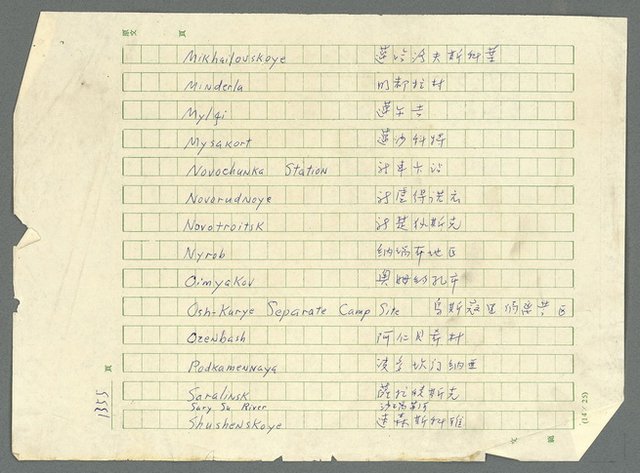 原文 頁
Mikhailovskoye 蓬哈洛夫斯科葉
Minderla 明都拉村
Mylgi 蓬尔吉
Mysakort 蓬沙科特
Novochunka Station 新車卡站
Novorudnoye 新虐得洪云
Novotroitsk 新楚伙斯克
Nyrob 納瑞布地区
Oimyakov 奥姆幼孔市
Osh-Kurye Separate Camp Site 烏斯寇里的
Ozenbash 阿仁贝希村
Podkamennaya 波多坎门納亚
Saralinsk 薩拉嶺斯克
Sary Su River 沙瑞蘇河
Shushenskoye 迷森斯科雅
頁
1355
(14×25)